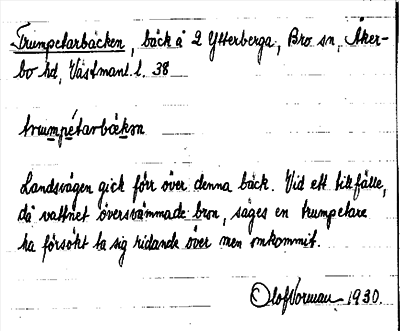 Trumpetarbäcken, bäck å 2 Ytterberga, Bro sn, Åker-
bo hd, Västmanl. l. 38
trumpétarbäkən
Landsvägen gick förr över denna bäck. Vid ett tillfälle,
då vattnet översvämmade bron, säges en trumpetare
ha försökt ta sig ridande över men omkommit.
Olof Norman 1930.